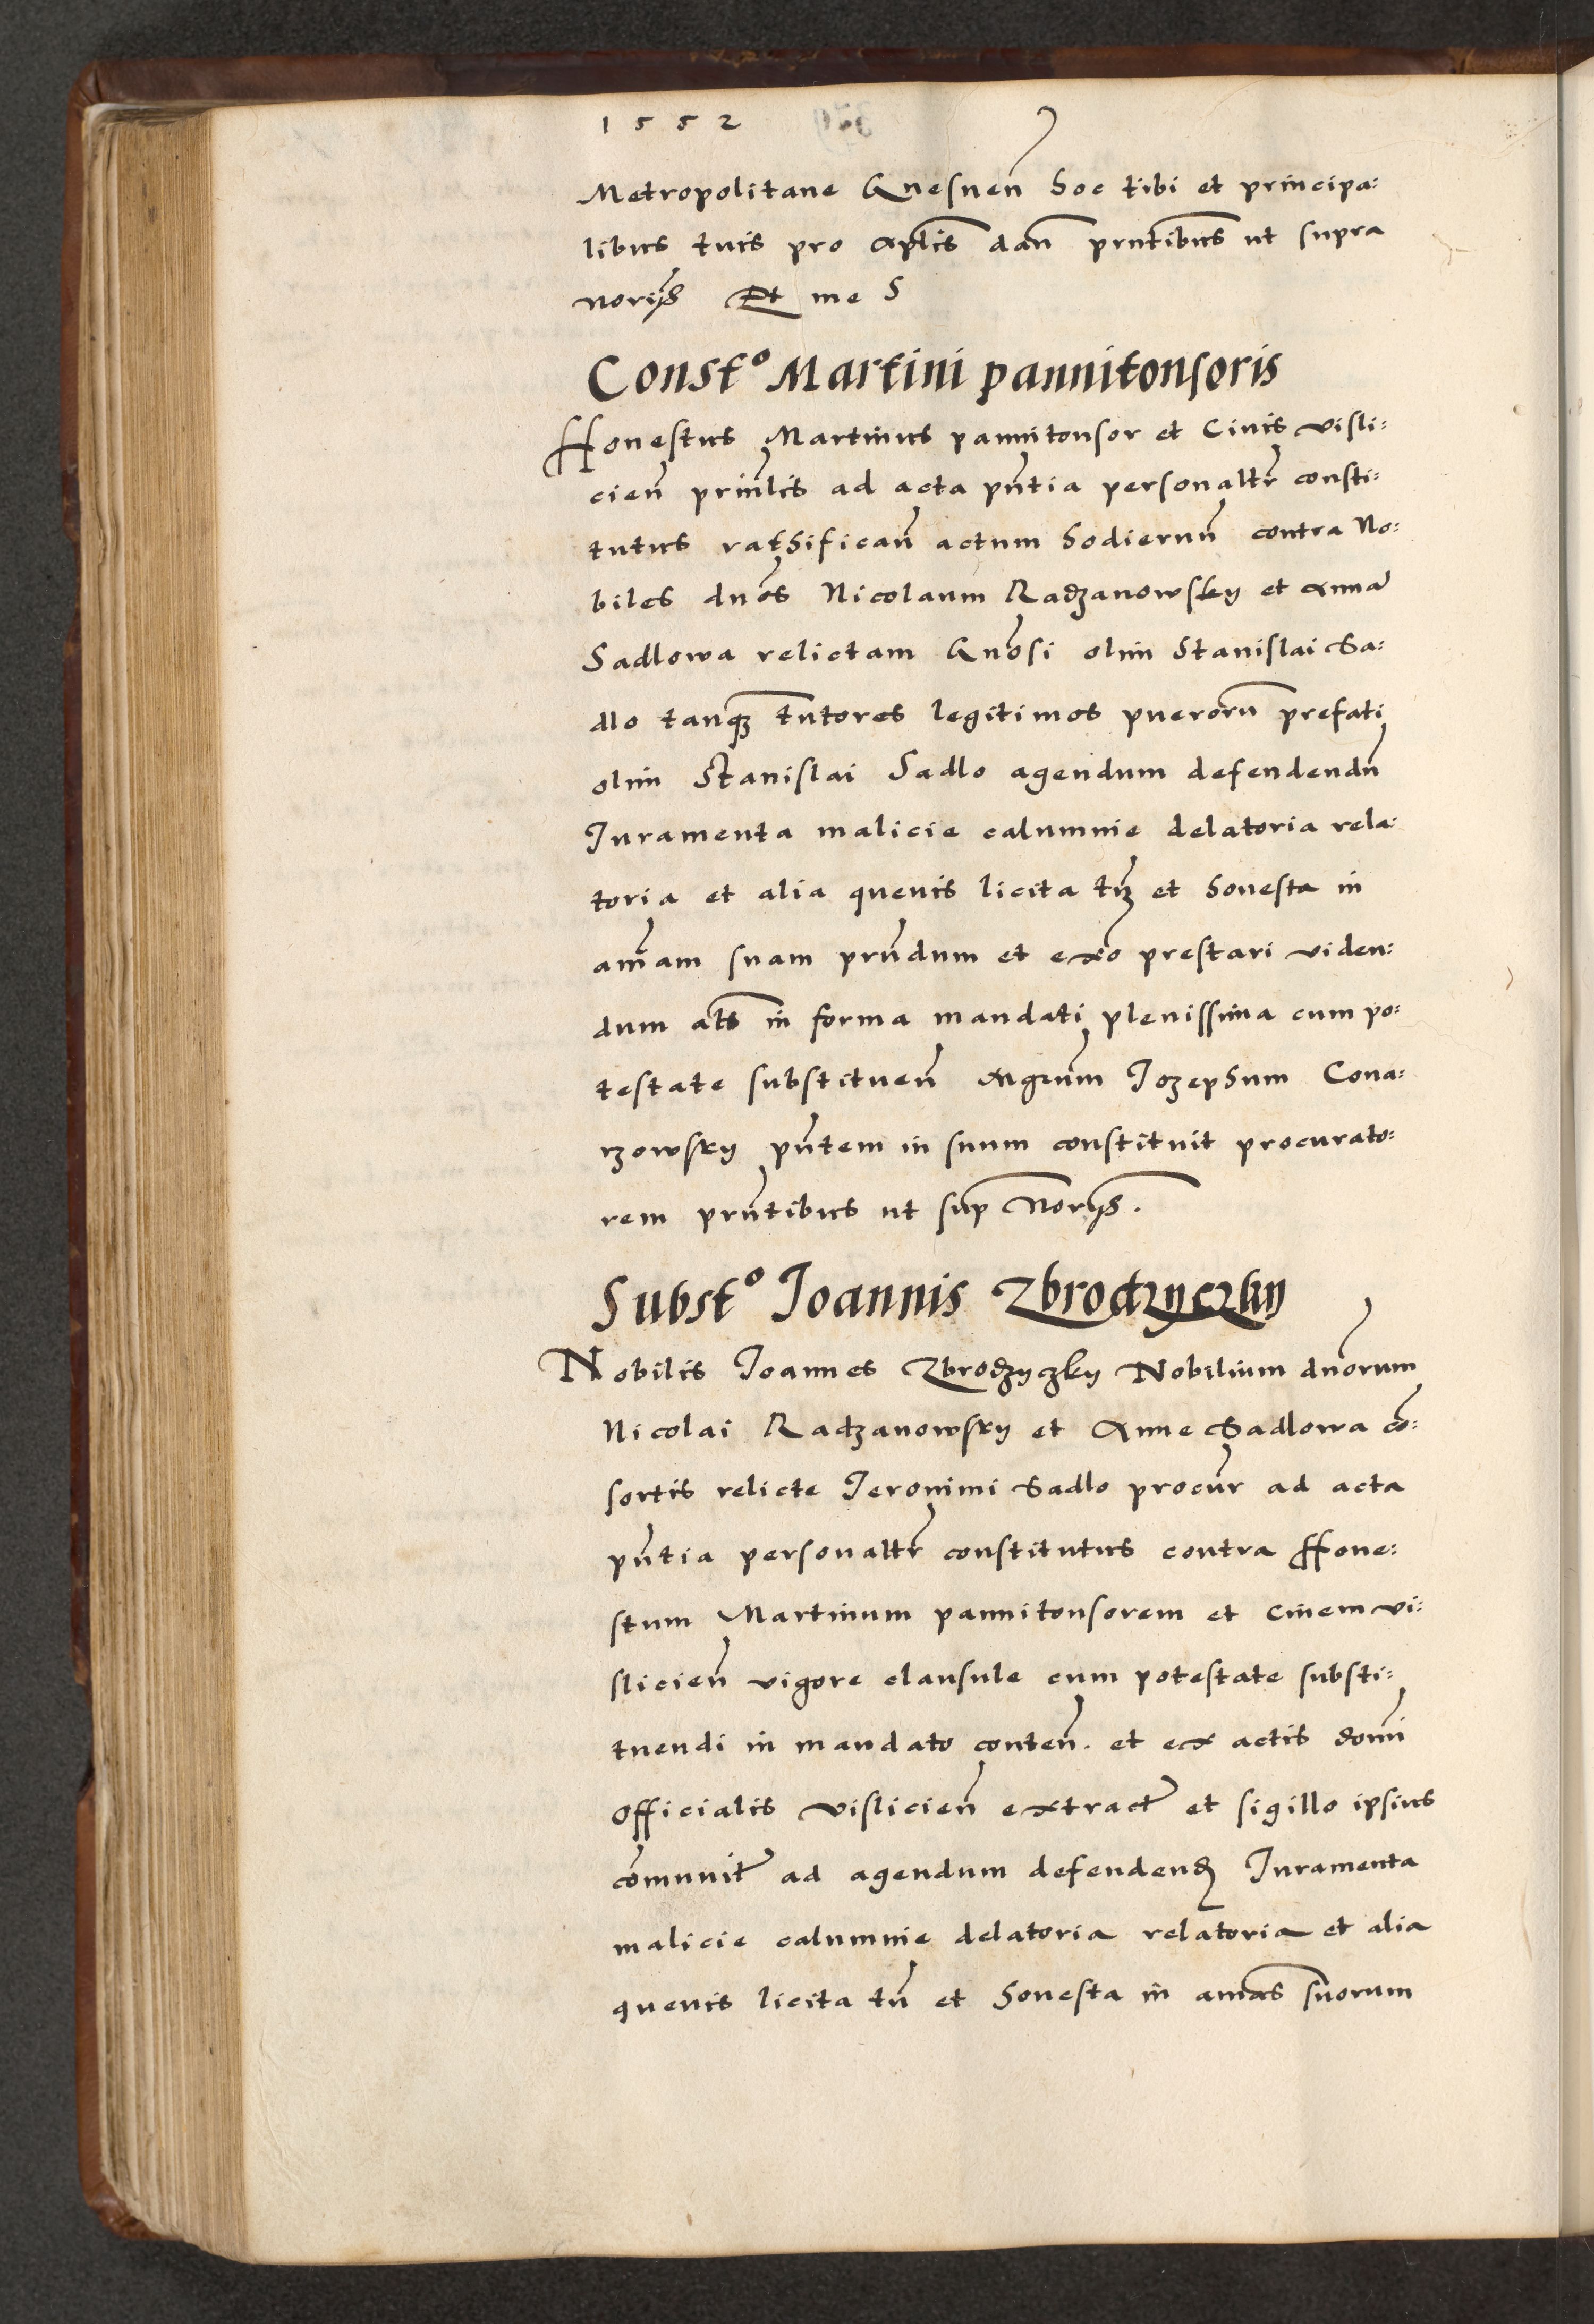 1552
Metropolitane Gnesnen̄ hoc tibi et principa:
libus tuis pro aptl̄is dan̄ pn̄tibus ut supra
norijs Et me S
Const͞o Martini pannitonsoris
Honestus Martinus pannitonsor et Civis visli:
cien̄ prin̄lis ad acta pn̄tia personaltr̄ consti:
tutus rathifican̄ actum hodiernū contra No:
biles dn̄os Nicolaum Radzanowsky et annā
Sadlowa relictam Gn̄osi olim Stanislai Sa:
dlo tanq̄ tutores legitimos puerorū prefati
olim Stanislai Sadlo agendum defendendū
Juramenta malicie calumnie delatoria rela:
toria et alia quevis licita tn̄ et honesta in
aīam suam prn̄dum et ex͞o prestari viden:
dum alt̄s in forma mandati plenissima cum po:
testate substituen̄ Mgrūm Jozephum Cona:
rzowsky pn̄tem in suum constituit procurato:
rem prn̄tibus ut sup̄ Norijs.
Subst͞o Joannis Zbrodzyczky
Nobilis Joannes Zbrodzyczky Nobilium dn̄orum
Nicolai Radzanowsky et Anne Sadlowa cō:
sortis relicte Jeronimi Sadlo procur̄ ad acta
pn̄tia personaltr̄ constitutus contra Hone:
stum Martinum pannitonsorem et civem vi:
slicien̄ vigore clausule cum potestate substi:
tuendi in mandato conten̄. et ex actis dom̄i
Officialis vislicien̄ extract̄ et sigillo ipsius
cōmunit̄ ad agendum defenden̄ Juramenta
malicie calumnie delatoria relatoria et alia
quevis licita tn̄ et honesta in anīas suorum